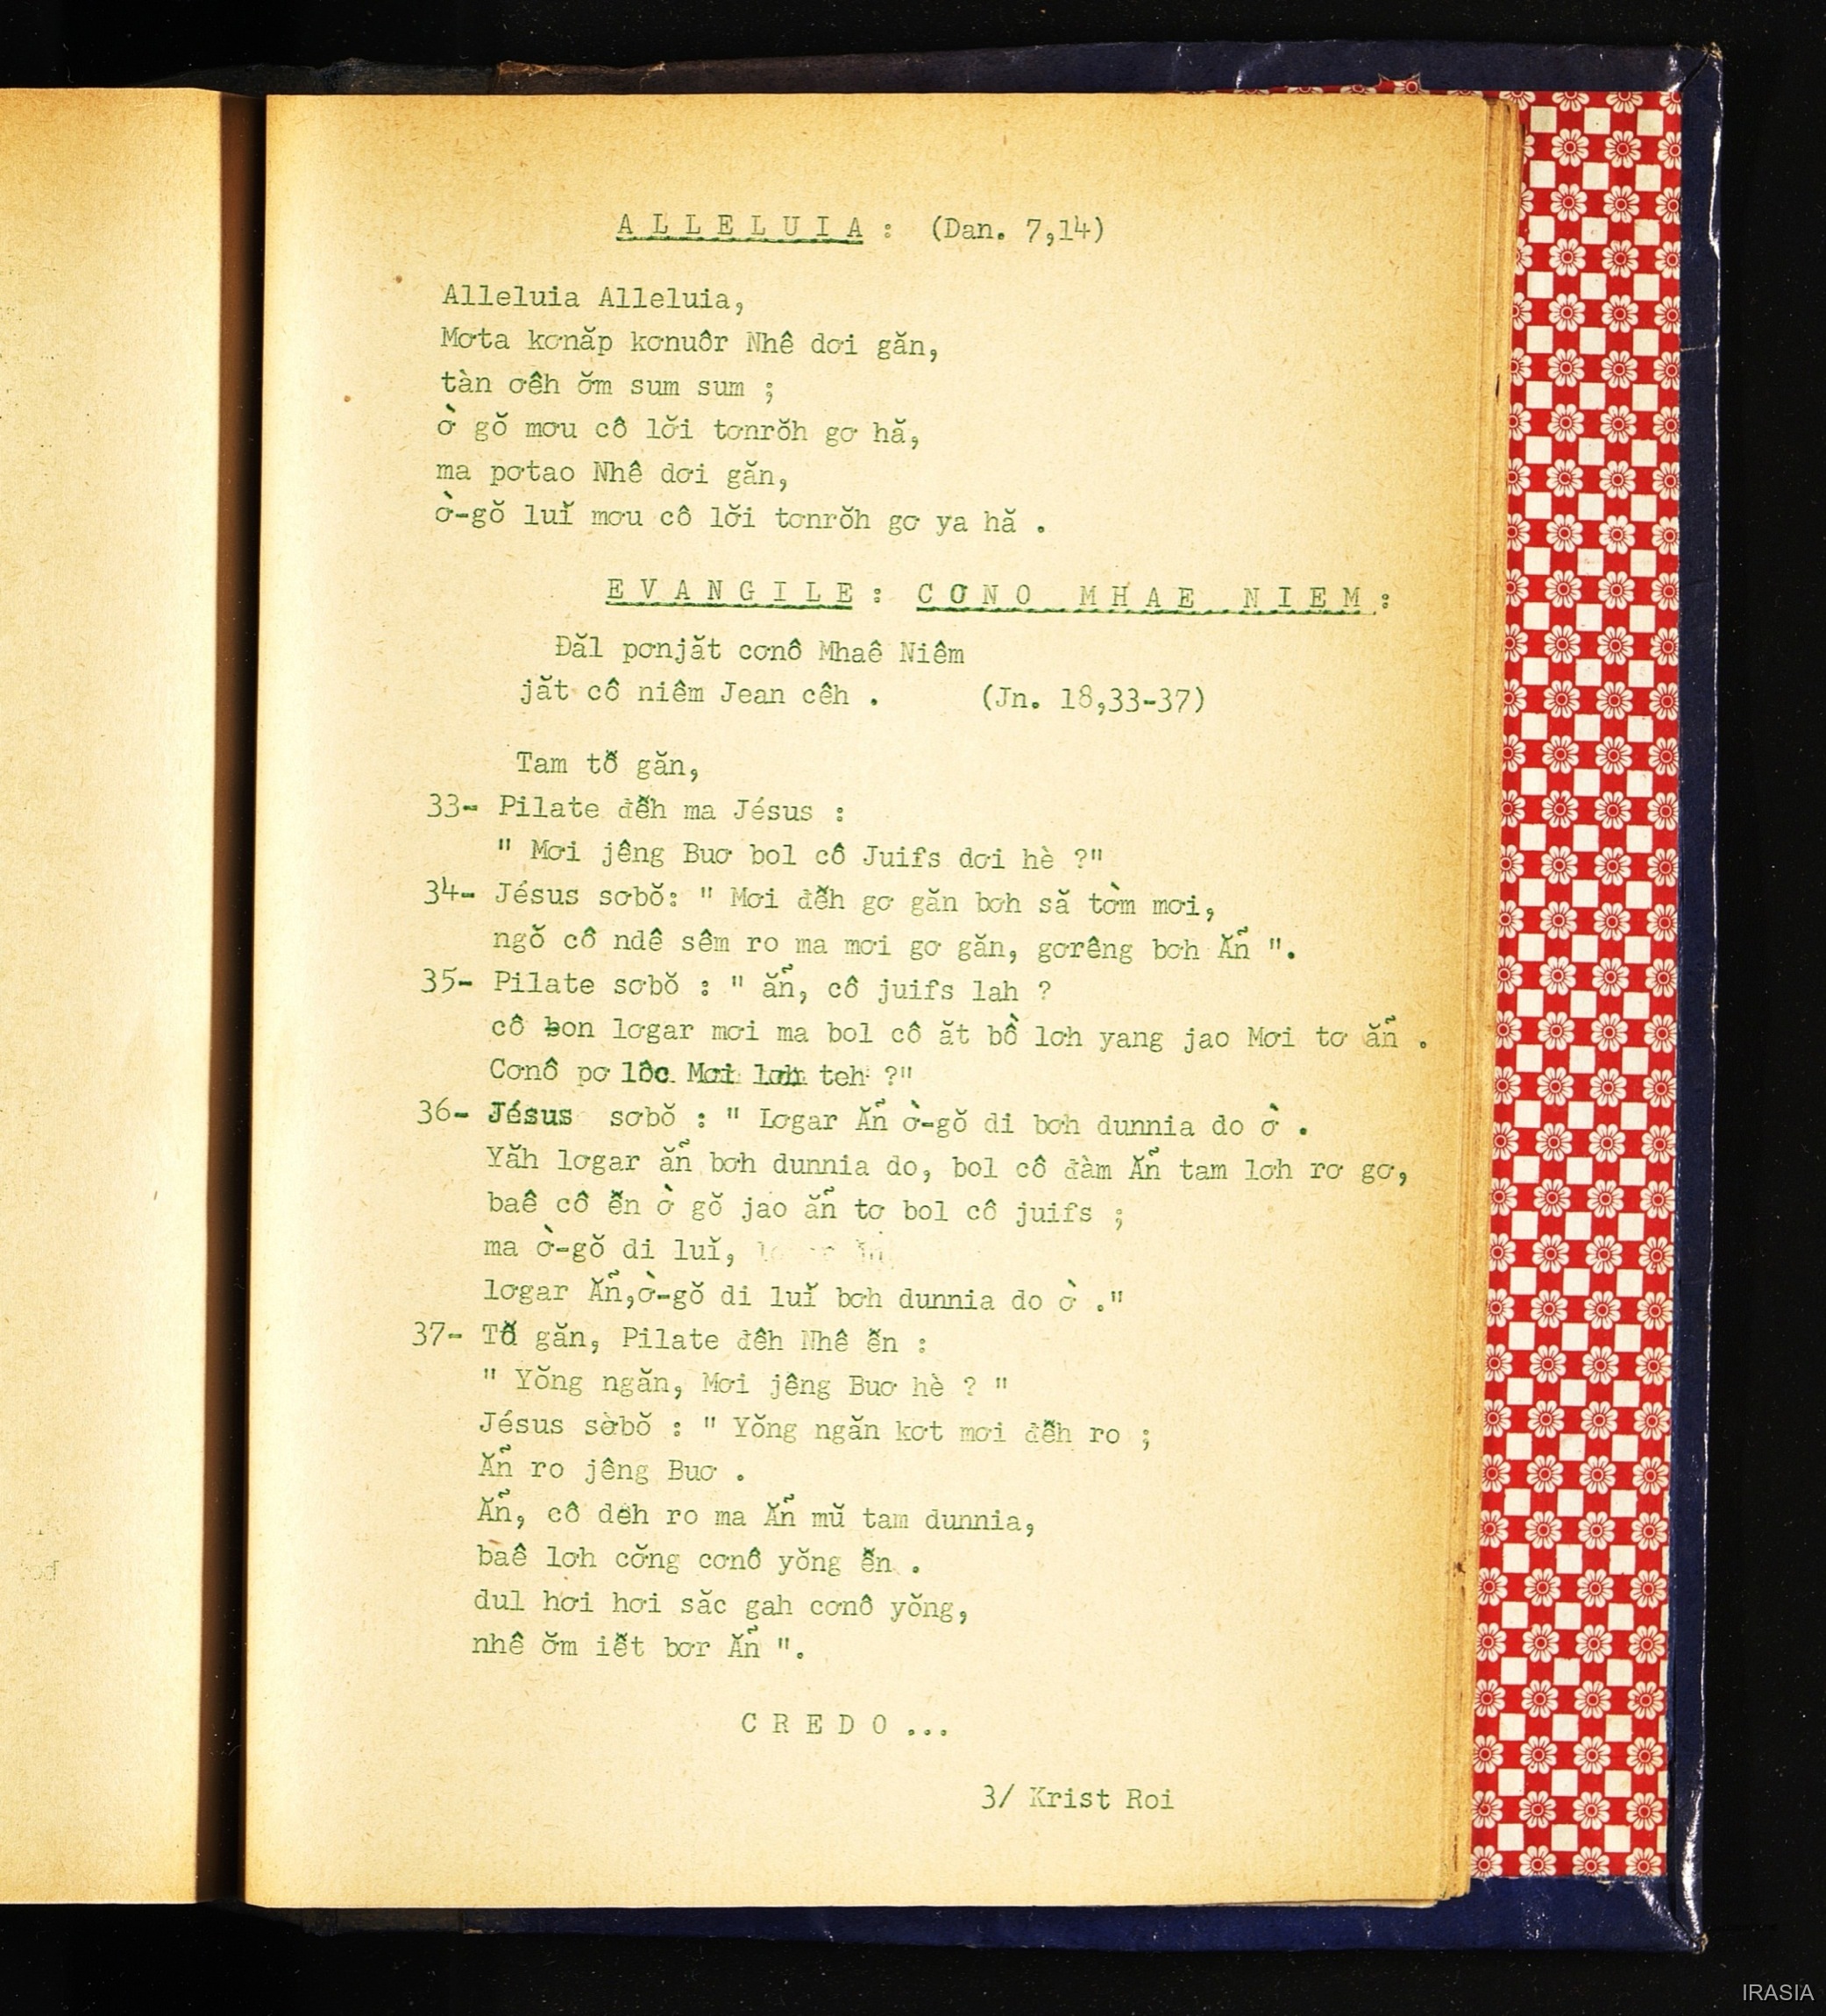 A L L E L U I A : (Dan. 7,14)
Alleluia Alleluia,
Mơta kơnăp kơnuôr Nhê dơi găn,
tàn ơêh ơ̆m sum sum ;
ờ gŏ mơu cô lơ̆i tơnrŏh gơ hă,
ma pơtao Nhê dơi găn,
ờ-gŏ luĭ mơu cô lơ̆i tơnrŏh gơ ya hă .
E V A N G I L E : C Ơ N O M H A E N I E M :
Đăl pơnjăt cơnô Mhaê Niêm
jăt cô niêm Jean cêh . (Jn. 18,33-37)
Tam tô̆ găn,
33- Pilate đê̆h ma Jésus :
" Mơi jêng Buơ bol cô Juifs dơi hè ?"
34- Jésus sơbŏ: " Mơi đê̆h gơ găn bơh să tờm mơi,
ngŏ cô ndê sêm ro ma mơi gơ găn, gơrêng bơh Ăñ ".
35- Pilate sơbŏ : " ăñ, cô juifs lah ?
cô bon lơgar mơi ma bol cô ăt bồ lơh yang jao Mơi tơ ăñ .
Cơnô pơ lôc Mơi lơh teh ?"
36- Jésus sơbŏ : " Lơgar Ăñ ờ-gŏ di bơh dunnia do ờ .
Yăh lơgar ăñ bơh dunnia do, bol cô đàm Ăñ tam lơh rơ gơ,
baê cô ê̆n ờ gŏ jao ăñ tơ bol cô juifs ;
ma ờ-gŏ di luĭ,
lơgar Ăñ,ờ-gŏ di luĭ bơh dunnia do ờ ."
37- Tô̆ găn, Pilate đêh Nhê ê̆n :
" Yŏng ngăn, Mơi jêng Buơ hè ? "
Jésus sờbŏ : " Yŏng ngăn kơt mơi đê̆h ro ;
Ăñ ro jêng Buơ .
Ăñ, cô dêh ro ma Ăñ mŭ tam dunnia,
baê lơh cơ̆ng cơnô yŏng ê̆n .
dul hơi hơi săc gah cơnô yŏng,
nhê ơ̆m iê̆t bơr Ăñ ".
C R E D O ...
3/ Krist Roi
IRASIA